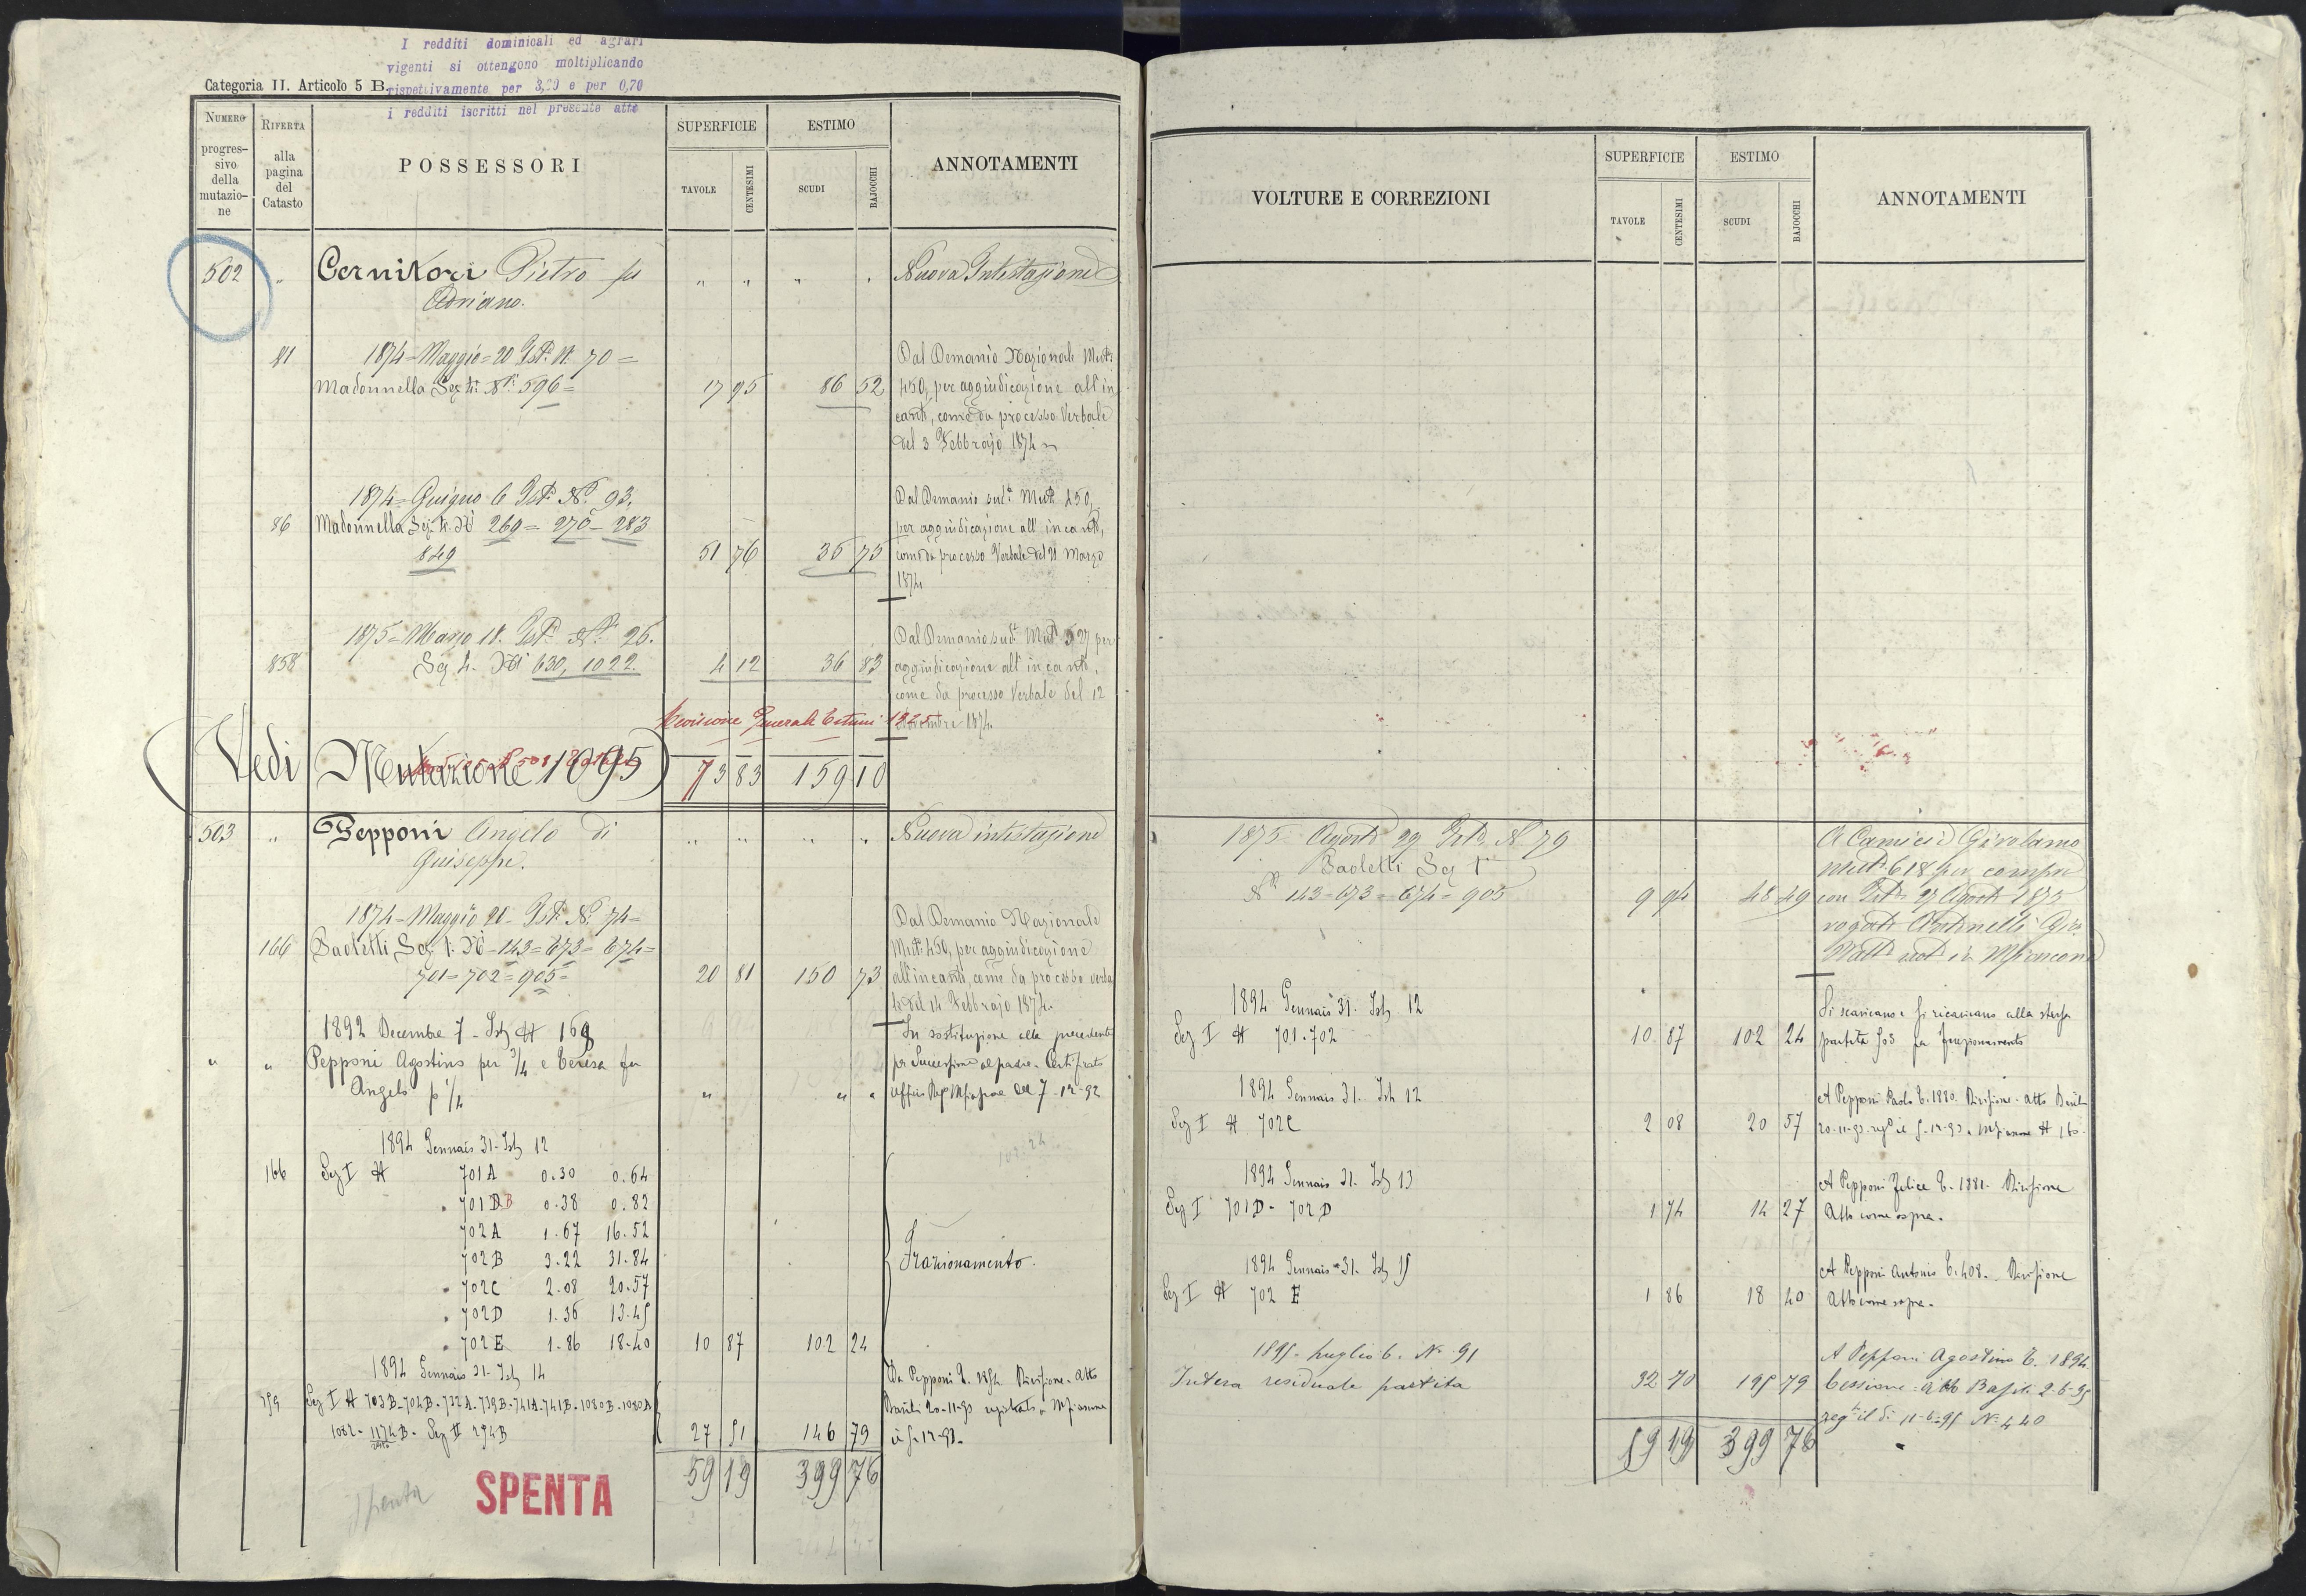 I redditi dominicali ed agrari
vigenti si ottengono moltiplicando
rispettivamente per 3,20 e per 0,70
i redditi iscritti nel presente atto
Categoria II. Articolo 5 B.
NUMERO progres- sivo della mutazio- ne
RIFERTA alla pagina del Catasto
POSSESSORI
SUPERFICIE
TAVOLE
CENTESIMI
ESTIMO
SCUDI
BAJOCCHI
ANNOTAMENTI
502 " Cernitori Pietro fu " " " " Nuova Intestazione
Adriano.
81 1874 = Maggio = 20 Ist. N. 70 = Dal Demanio Nazionale Mut.
Madonnella Sez. N. 596 = 17 95 86 52 450, per aggiudicazione all'in
canti, come da processo Verbale
del 3 Febbrajo 1874
1874 = Giugno 6 Ist. N. 93. Dal Demanio sud. Mut. 450,
86 Madonnella Sez. N. 269 = 270 = 283 per aggiudicazione all'incanti,
849 51 76 35 75 come da processo Verbale del 21 Marzo
1874
1875 = Marzo 18. Ist. N. 26. Dal Demanio sud. Mut. 527 per
858 Sez. N. 630, 1022. 4 12 36 83 aggiudicazione all'incanti,
come da processo Verbale del 12
Revisione Generale Estimi 1925
1874
(Vedi Mutazione 1095) 73 83 159 10
503 " Pepponi Angelo di " " " " Nuova intestazione
Guiseppe.
1874 - Maggio 21 - Ist. N. 74 = Dal Demanio Nazionale
166 Paoletti Sez. 1. N. 143 = 673 = 674 = Mut. 450, per aggiudicazione
701 = 702 = 905 = 20 81 150 73 all'incanti, come da processo verba
le del 14 Febbrajo 1874.
1892 Decembre 7 - Ist. N 168 In sostituzione alla precedente
" " Pepponi Agostino per 3/4 e Teresa fu per Successione al padre. Certificato
Angelo p 1/4 " " " 7-12-92
1894 Gennaio 31 - Ist. 12
166 Sez I N 701 A 0.30 0.64
701 B B 0.38 0.82
702 A 1.67 16.52
702 B 3.22 31.84 Frazionamento.
702 C 2.08 20.57
702 D 1.36 13.45
702 E 1.86 18.40 10 87 102 24
1894 Gennaio 31 - Ist. 14 Da Pepponi Divisione - Atto
759 Sez I N 703B - 704B - 732A - 739B - 741A - 741B - 1080B - 1080D Basili 20-11-93 registrato a
1082 - 1174B - Sez II 274B 27 51 146 79 5-12-93.
59 19 399 76
Spenta
SPENTA
VOLTURE E CORREZIONI
SUPERFICIE
TAVOLE
CENTESIMI
ESTIMO
SCUDI
BAJOCCHI
ANNOTAMENTI
1875 Agosto 29 Ist. N 79 A Camicie Girolamo
Paoletti Sez 1 Mut. 618 per compra
N. 143 = 673 = 674 = 905 9 94 48 49 con Ist. 27 Agosto 1875
rogato Antinelli
not. in
1894 Gennaio 31. Ist. 12 Si scaricano e si ricaricano alla stessa
Sez I N 701.702 10 87 102 24 partita 503 per frazionamento
1894 Gennaio 31. Ist. 12 A Pepponi Paolo T. 1880. Divisione. Atto Basili
Sez I N 702C 2 08 20 57 20-11-93 5-12-93 N 160
1894 Gennaio 31. Ist. 13 A Pepponi Felice T. 1881. Divisione
Sez I 701D - 702D 1 74 14 27 Atto come sopra.
1894 Gennaio 31. Ist. 15 A Pepponi Antonio T. 408. Divisione
Sez I N 702 E 1 86 18 40 Atto come sopra.
1895 - Luglio 6. N. 91 A Pepponi Agostino T. 1894
Intera residuale partita 32 70 195 79 Cessione: atto Basili 2-6-95
reg. il dì 11-6-95 N. 440
59 19 399 76